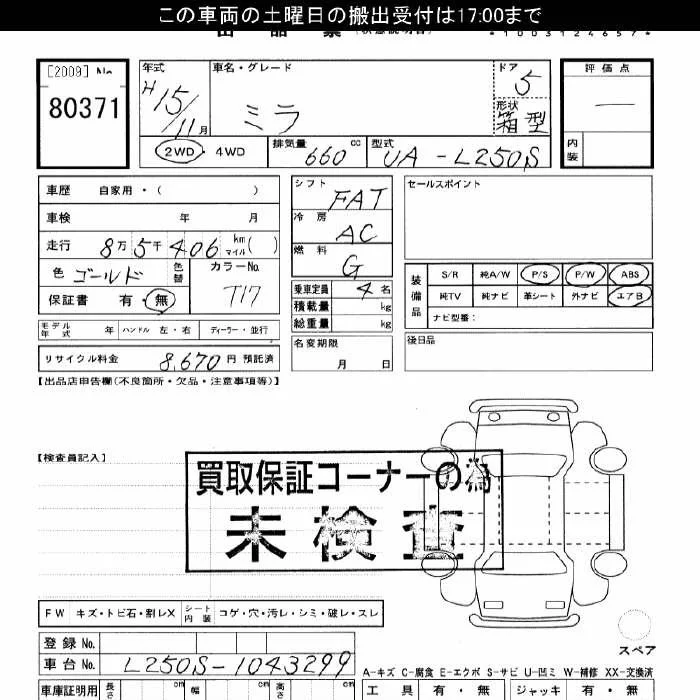 この車両の土曜日の搬出受付は17:00まで
*1003124657*
[2009] No
80371
年式 車名・グレード ドア 評価点
H15/11月 ミラ 5 —
形状 箱型
内装
2WD・4WD 排気量 660 cc 型式 UA-L250S
車歴 自家用・( )
車検 年 月
走行 8万5千406 km マイル( )
色 ゴールド 色替 カラーNo. T17
保証書 有・無
モデル年式 年 ハンドル 左・右 ディーラー・並行
リサイクル料金 8,670 円 預託済
シフト FAT
冷房 AC
燃料 G
乗車定員 4 名
積載量 kg
総重量 kg
名変期限
月 日
セールスポイント
装備品 S/R 純A/W P/S P/W ABS
純TV 純ナビ 革シート 外ナビ エアB
ナビ型番:
後日品
【出品店申告欄(不良箇所・欠品・注意事項等)】
【検査員記入】
買取保証コーナーの為
未検査
FW キズ・トビ石・割レX シート内装 コゲ・穴・汚レ・シミ・破レ・スレ
スペア
登録 No.
車台 No. L250S-1043299
A-キズ C-腐食 E-エクボ S-サビ U-凹ミ W-補修 XX-交換済
車庫証明用 長さ cm 幅 cm 高さ cm
工具 有・無 ジャッキ 有・無